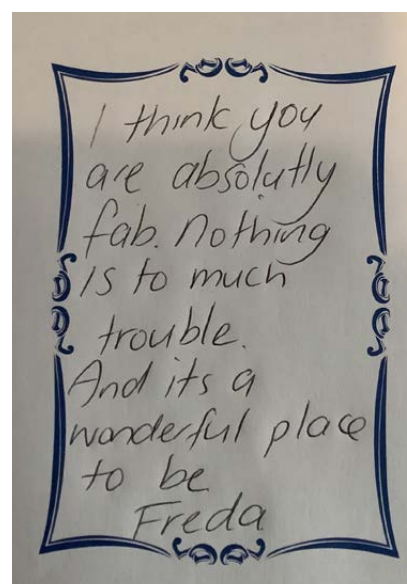 I think you
are absolutly
fab. Nothing
is to much
trouble.
And its a
wonderful place
to be
Freda